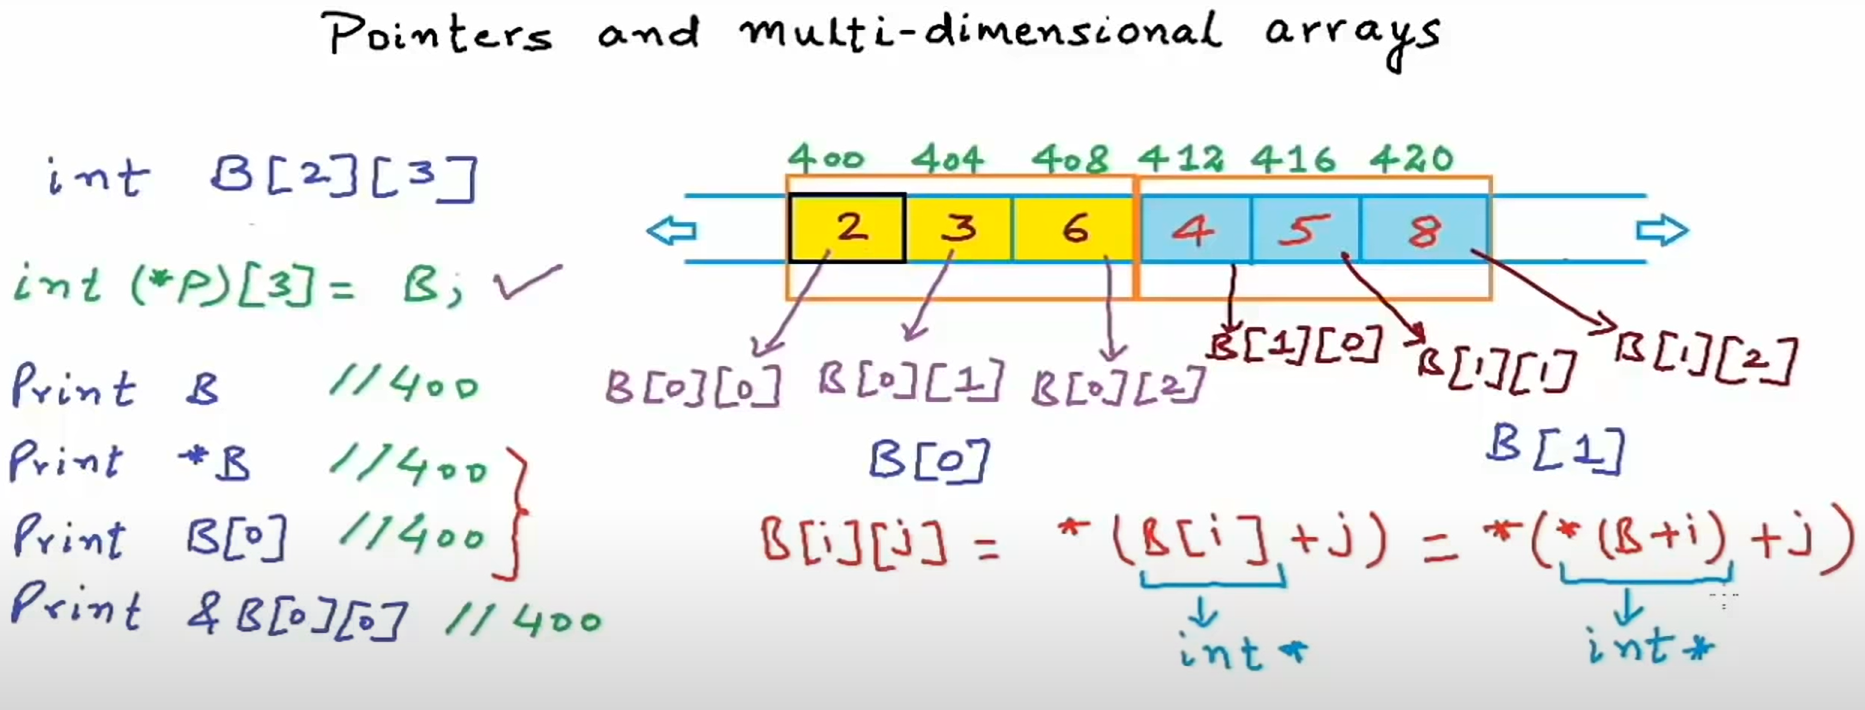 Pointers and multi-dimensional arrays
int B[2][3]
int (*P)[3] = B; ✓
Print B //400
Print *B //400
Print B[0] //400
Print &B[0][0] //400
400 404 408 412 416 420
2 3 6 4 5 8
B[0][0] B[0][1] B[0][2] B[1][0] B[1][1] B[1][2]
B[0] B[1]
B[i][j] = *(B[i]+j) = *(*(B+i)+j)
int* int*